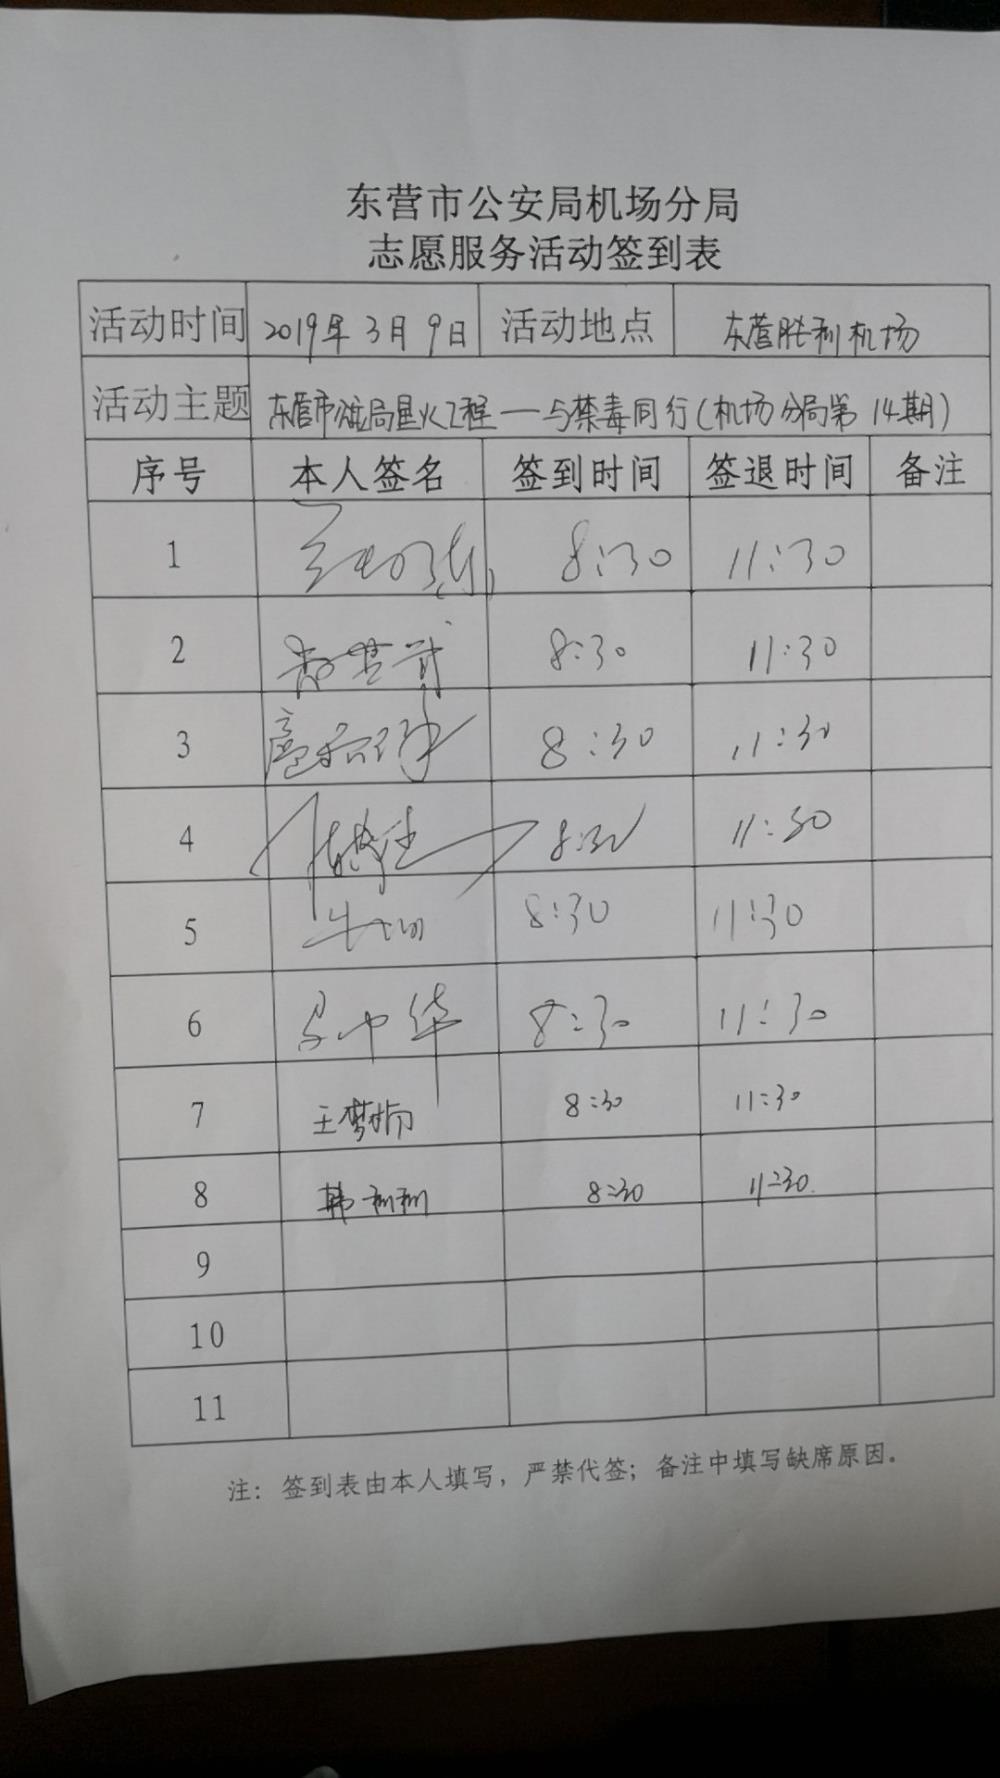 东营市公安局机场分局
志愿服务活动签到表
活动时间 2019年3月9日 活动地点 东营胜利机场
活动主题 东营市公安局星火工程——与禁毒同行(机场分局第14期)
序号 本人签名 签到时间 签退时间 备注
1 8:30 11:30
2 8:30 11:30
3 8:30 11:30
4 8:30 11:30
5 8:30 11:30
6 马中华 8:30 11:30
7 王梦 8:30 11:30
8 韩利利 8:30 11:30
9
10
11
注：签到表由本人填写，严禁代签；备注中填写缺席原因。